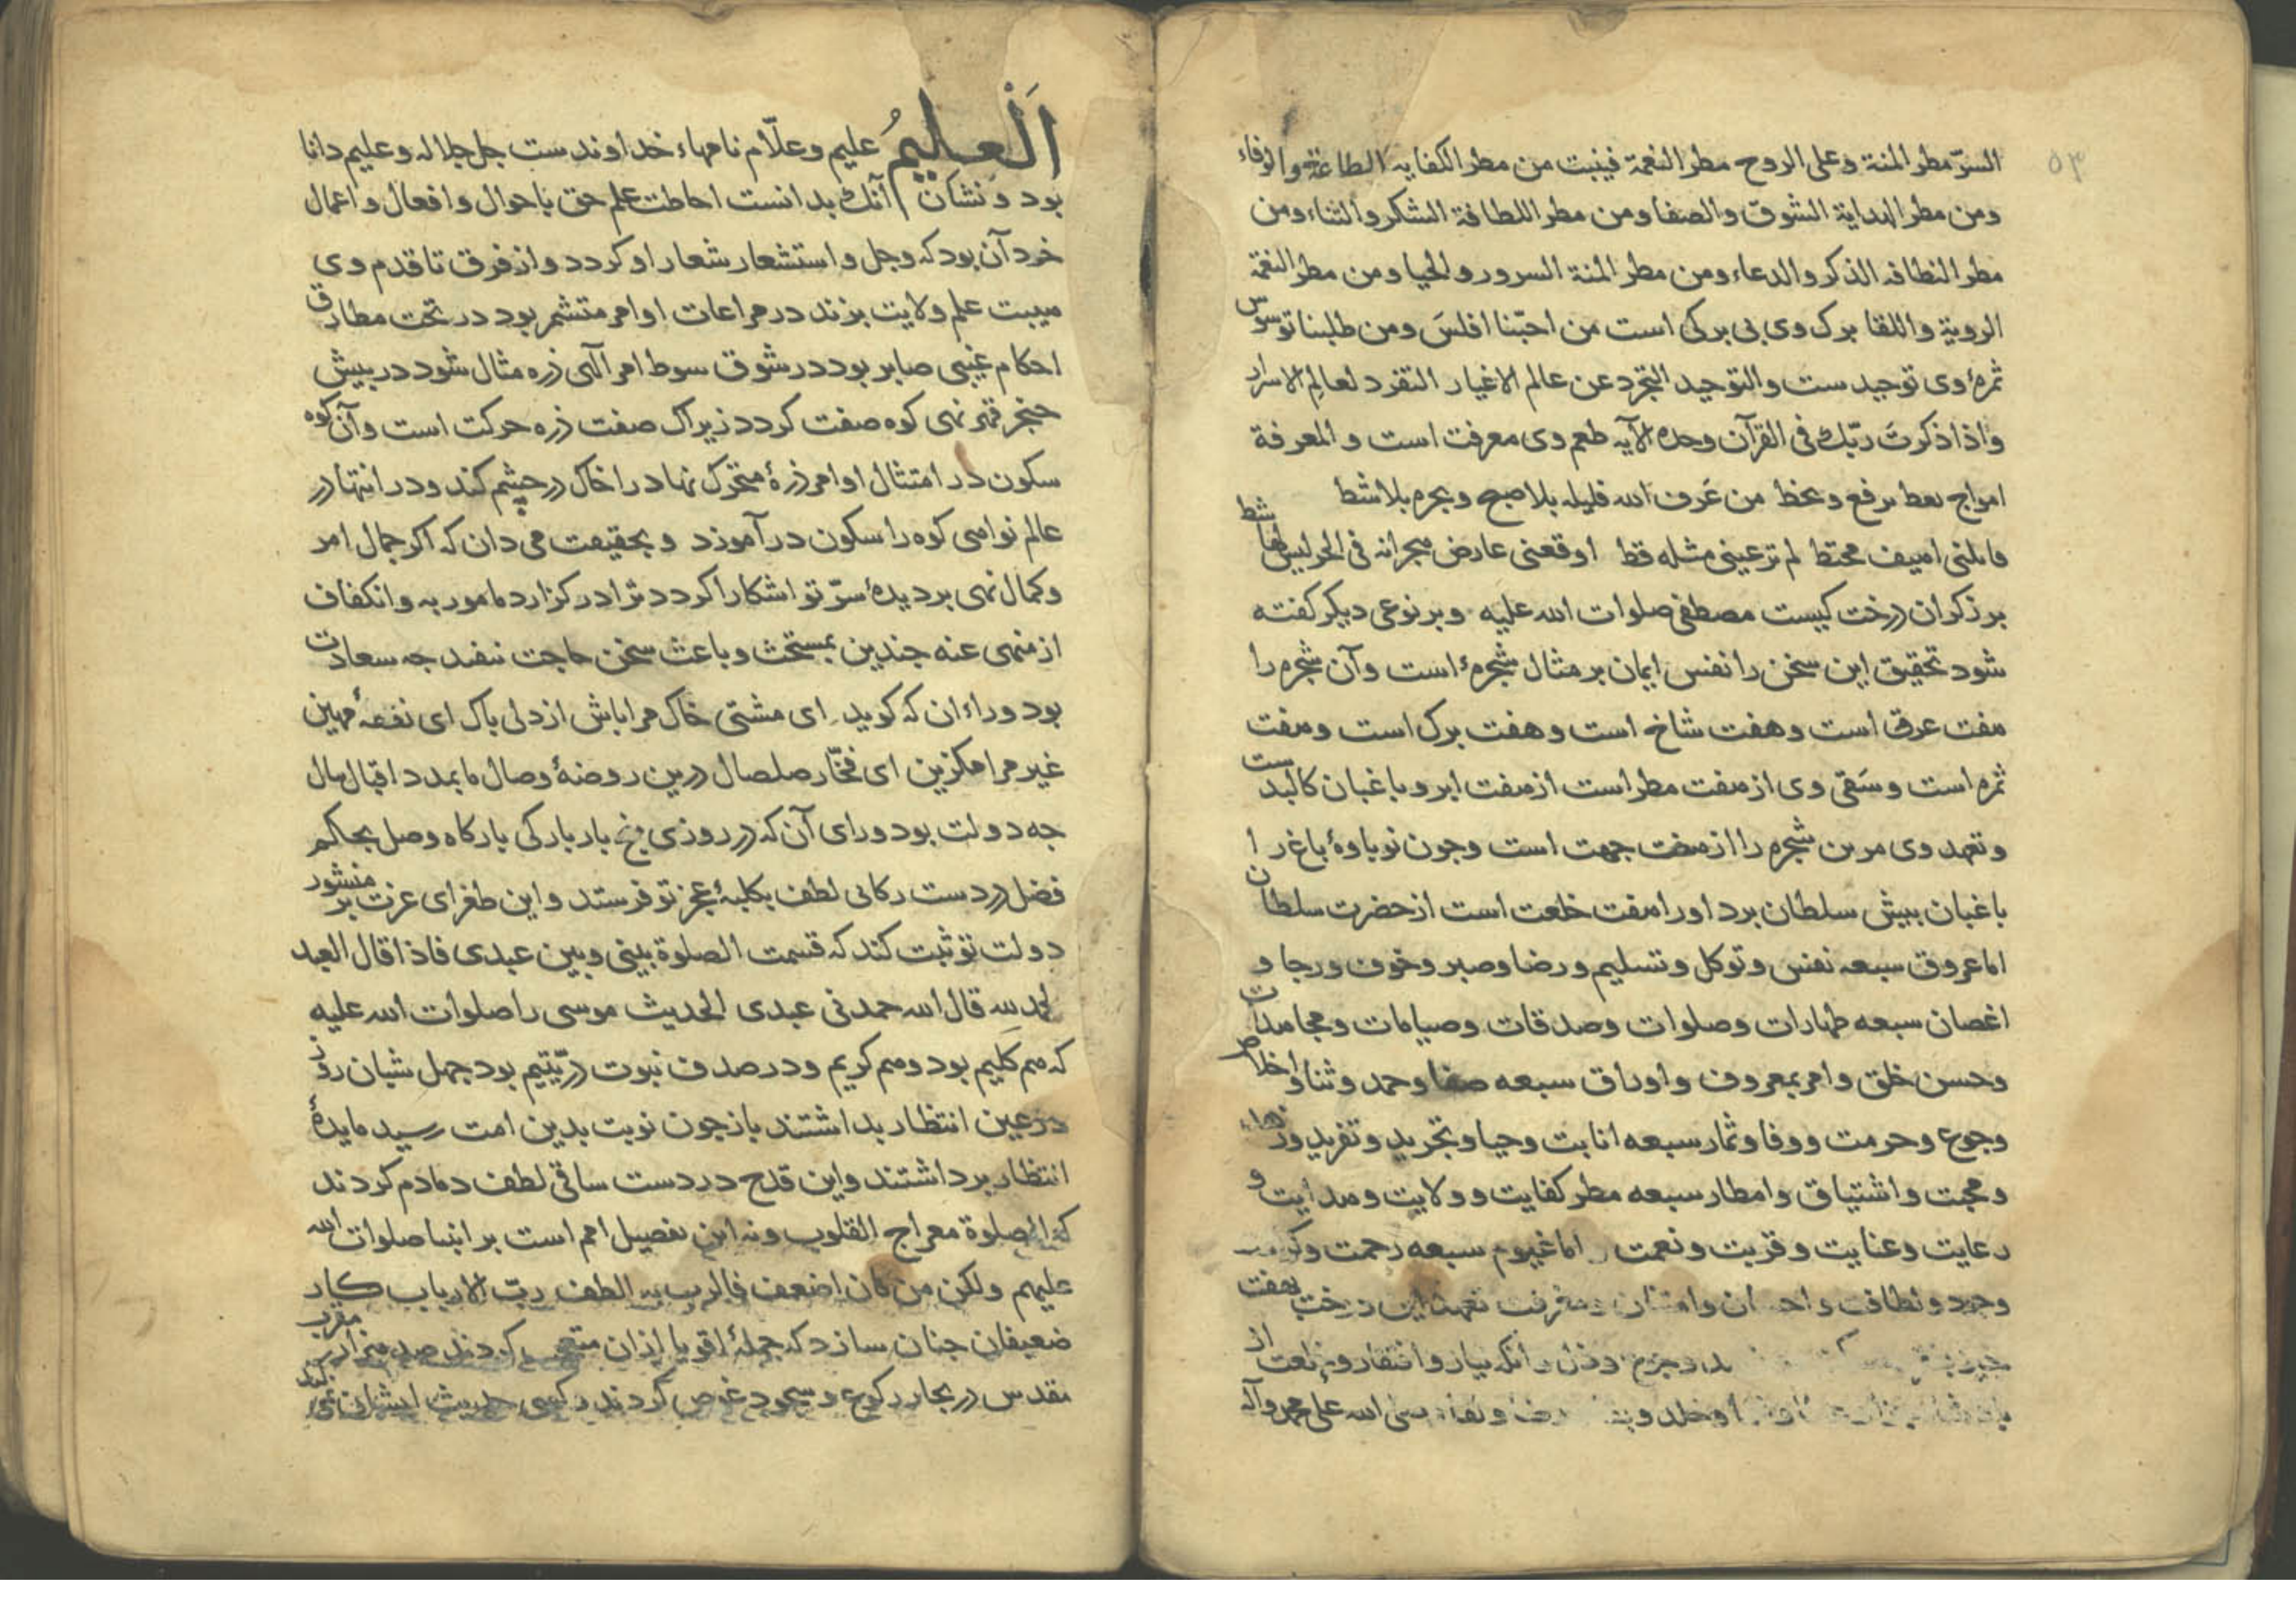 ۵۳
السرّ مطر المنة وعلى الروح مطر النعمة فينبت من مطر الكفايه الطاعة والوفاء
ومن مطر الهداية الشوق والصفا ومن مطر اللطافة الشكر والثناء ومن
مطر النظافه الذكر والدعاء ومن مطر المنة السرور والحيا ومن مطر النعمة
الروية واللقا برك وى بى بركى است من احبّنا افلسَ ومن طلبنا توسوس
ثمرهٔ وى توحيد ست والتوحيد التجرّد عن عالم الاغيار التفرد لعالم الاسرار
واذا ذكرتَ ربّك فى القرآن وحده الآيه طعم وى معرفت است والمعرفة
امواج تغط ترفع وتحط من عَرف الله قليله بلا صبح وبحره بلا شط
لم تر عينى مثله قط اوقعنى عارض هجرانه فى الحر ليس لها شط
بر ذكران درخت كيست مصطفى صلوات الله عليه وبر نوعى ديكر كفته
شود تحقيق اين سخن را نفس ايمان بر مثال شجرهٔ است وآن شجره را
هفت عرق است وهفت شاخ است وهفت برك است وهفت
ثمره است وسَقى وى از هفت مطر است از هفت ابر وباغبان كالبدست
وتعهد وى مرين شجره را از هفت جهت است وجون نوباوهٔ باغ را
باغبان بيش سلطان برد اورا هفت خلعت است از حضرت سلطان
اما عروق سبعه نفس وتوكل وتسليم ورضا وصبر وخوف ورجا و
اغصان سبعه طهارات وصلوات وصدقات وصيامات ومجاهدات
وحسن خلق وامر بمعروف واوراق سبعه صفا وحمد وثنا واخلاص
وجوع وحرمت ووفا وثمار سبعه انابت وحيا وتجريد وتفريد وزهاد
ومحبت واشتياق وامطار سبعه مطر كفايت وولايت وهدايت و
رعايت وعنايت وقربت ونعمت اما غيوم سبعه رحمت
وجود ونظافت وامتنان ومغفرت تعهد اين درخت بهفت
وجزع وذل وانكه نياز وافتقار وخلعت از
وخلد ولقاء صلى الله على محمد وآله
اَلْعلِيمُ عليم وعلّام نامهاء خداوندست جل جلاله وعليم دانا
بود ونشان آنك بدانست احاطت علم حق باحوال وافعال واعمال
خود آن بود كه وجل واستشعار شعار او كردد واز فرق تا قدم وى
هيبت علم ولايت بزند در مراعات اوامر متشمر بود در تحت مطارق
احكام غيبى صابر بود در شوق سوط امر آلهى ذره مثال شود در بيش
خنجر قهر نهى كوه صفت كردد زيراك صفت ذره حركت است وآن كوه
سكون در امتثال اوامر ذرهٔ متحرك نهاد را خاك در چشم كند ودر انتها در
عالم نواهى كوه را سكون در آموزد وبحقيقت مى دان كه اكر جمال امر
وكمال نهى بر ديدهٔ سرّ تو اشكارا كردد ترا در كزارد مامور به وانكفاف
از منهى عنه جندين بمستحث وباعث سخن حاجت نيفتد جه سعادت
بود وراء ان كه كويد اى مشتى خاك مرا باش از دلى باك اى نفعهٔ مهين
غير مرا مكزين اى فخّار صلصال درين روضهٔ وصال ما بمدد اقبال بال
جه دولت بود وراى آن كه در روزى پنج بار باركى باركاه وصل بحاكم
فضل در دست ركابى لطف بكلبهٔ عجز تو فرستد واين طغراى عزت بر منشور
دولت تو ثبت كند كه قسمت الصلوة بينى وبين عبدى فاذا قال العبد
الحمد لله قال الله حمدنى عبدى الحديث موسى را صلوات الله عليه
كه هم كليم بود وهم كريم ودر صدف نبوت درّ يتيم بود جهل شبان روز
در عين انتظار بداشتند باز جون نوبت بدين امت رسيد مايدهٔ
انتظار برداشتند واين قدح در دست ساقى لطف دمادم كردند
كه الصلوة معراج القلوب ونه اين تفضيل امم است بر انبيا صلوات الله
عليهم ولكن من كان اضعف فالرب به الطف ربّ الارباب كار
ضعيفان جنان سازد كه جملهٔ اقويا ازان متعجب كردند صد هزار مقرب
مقدس در بحار ركوع وسجود غوص كردند وكسى حديث ايشان نمى كند